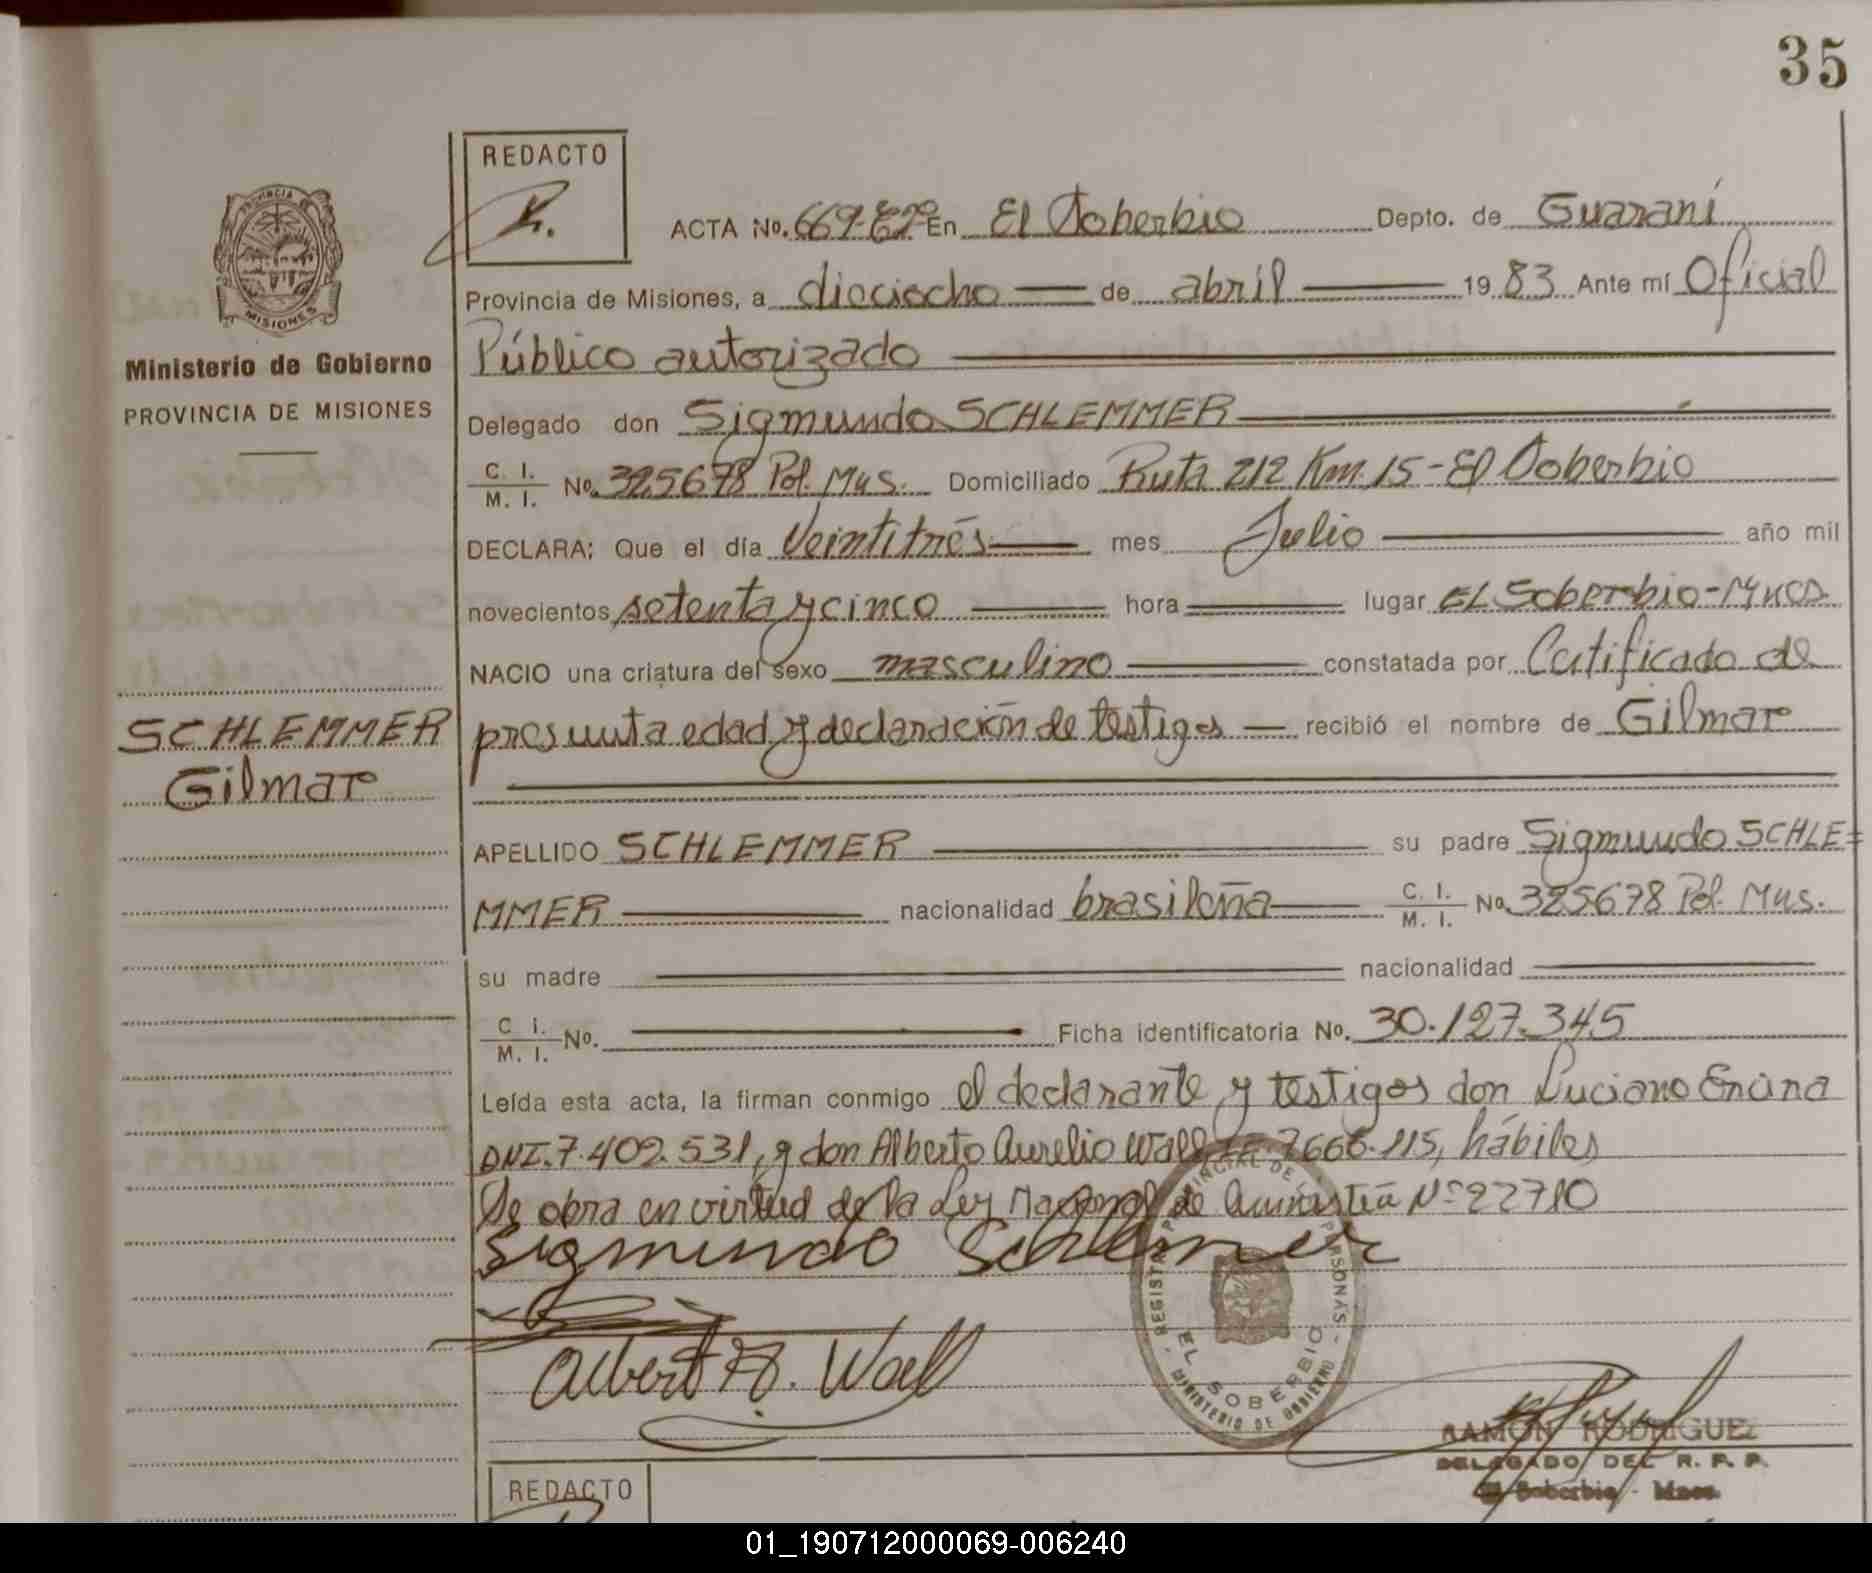 35
REDACTO
ACTA No. 669-Eº En El Soberbio Depto. de Guaraní
Provincia de Misiones, a dieciocho de abril 1983 Ante mí Oficial
Público autorizado
Delegado don Sigmundo SCHLEMMER
C. I. M. I. No. 325678 Pol. Mns. Domiciliado Ruta 212 Km. 15 - El Soberbio
DECLARA; Que el día Veintitrés mes Julio año mil
novecientos setenta y cinco hora lugar EL Soberbio - Mnes
NACIO una criatura del sexo masculino constatada por Certificado de
presunta edad y declaración de testigos recibió el nombre de Gilmar
PROVINCIA DE MISIONES
Ministerio de Gobierno
PROVINCIA DE MISIONES
SCHLEMMER
Gilmar
APELLIDO SCHLEMMER su padre Sigmundo SCHLE=
MMER nacionalidad brasileña C. I. M. I. No. 325678 Pol. Mns.
su madre nacionalidad
C. I. M. I. No. Ficha identificatoria No. 30.127.345
Leída esta acta, la firman conmigo el declarante y testigos don Luciano Encina
DNI. 7.409.531, y don Alberto Aurelio Wall LE 7666.115, hábiles
Se obra en virtud de la Ley Nacional de Amnistía Nº 22710
Sigmundo Schlemer
Albert A. Wall
REGISTRO PROVINCIAL DE LAS PERSONAS
EL SOBERBIO
MINISTERIO DE GOBIERNO
RAMON RODRIGUEZ
DELEGADO DEL R. P. P.
El Soberbio - Mnes.
REDACTO
01_190712000069-006240